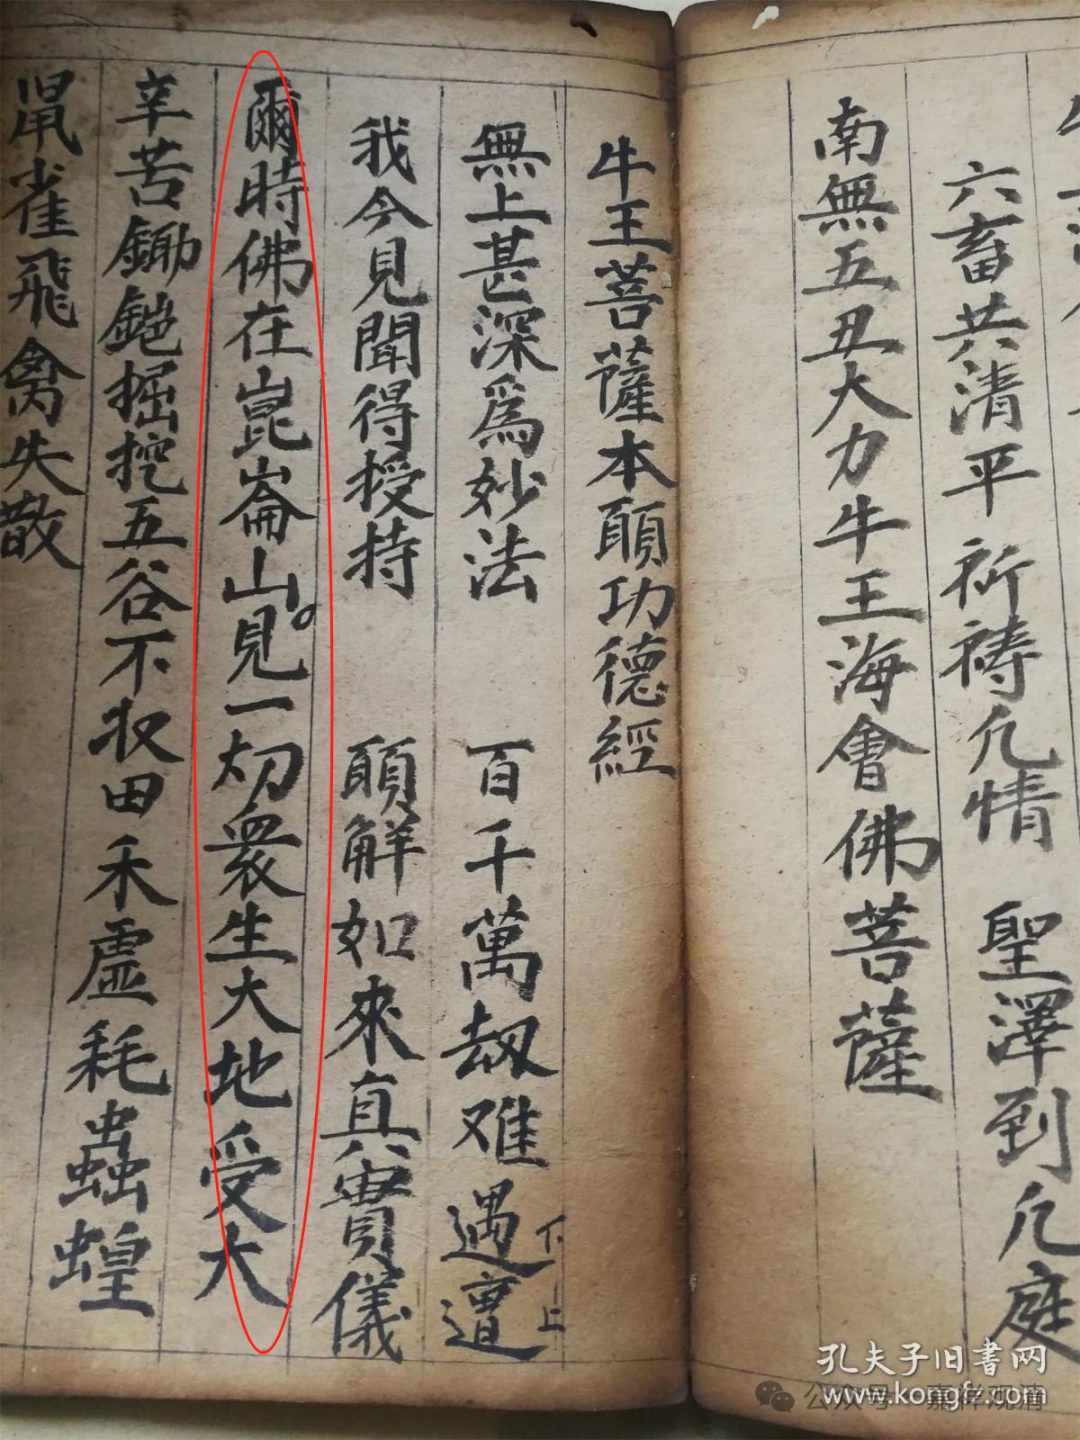 六畜共清平 祈禱凢情 聖澤到凢庭
南無五丑大力牛王海會佛菩薩
牛王菩薩本願功德經
無上甚深爲妙法 百千萬劫难遇遭
下
上
我今見聞得授持 願解如來真實儀
爾時佛在崑崙山見一切衆生大地受大
辛苦鋤鎞掘挖五谷不收田禾虛耗蟲蝗
鼠雀飛禽失散
孔夫子旧書网
www.kongfz.com
公众号·嘉祥观清